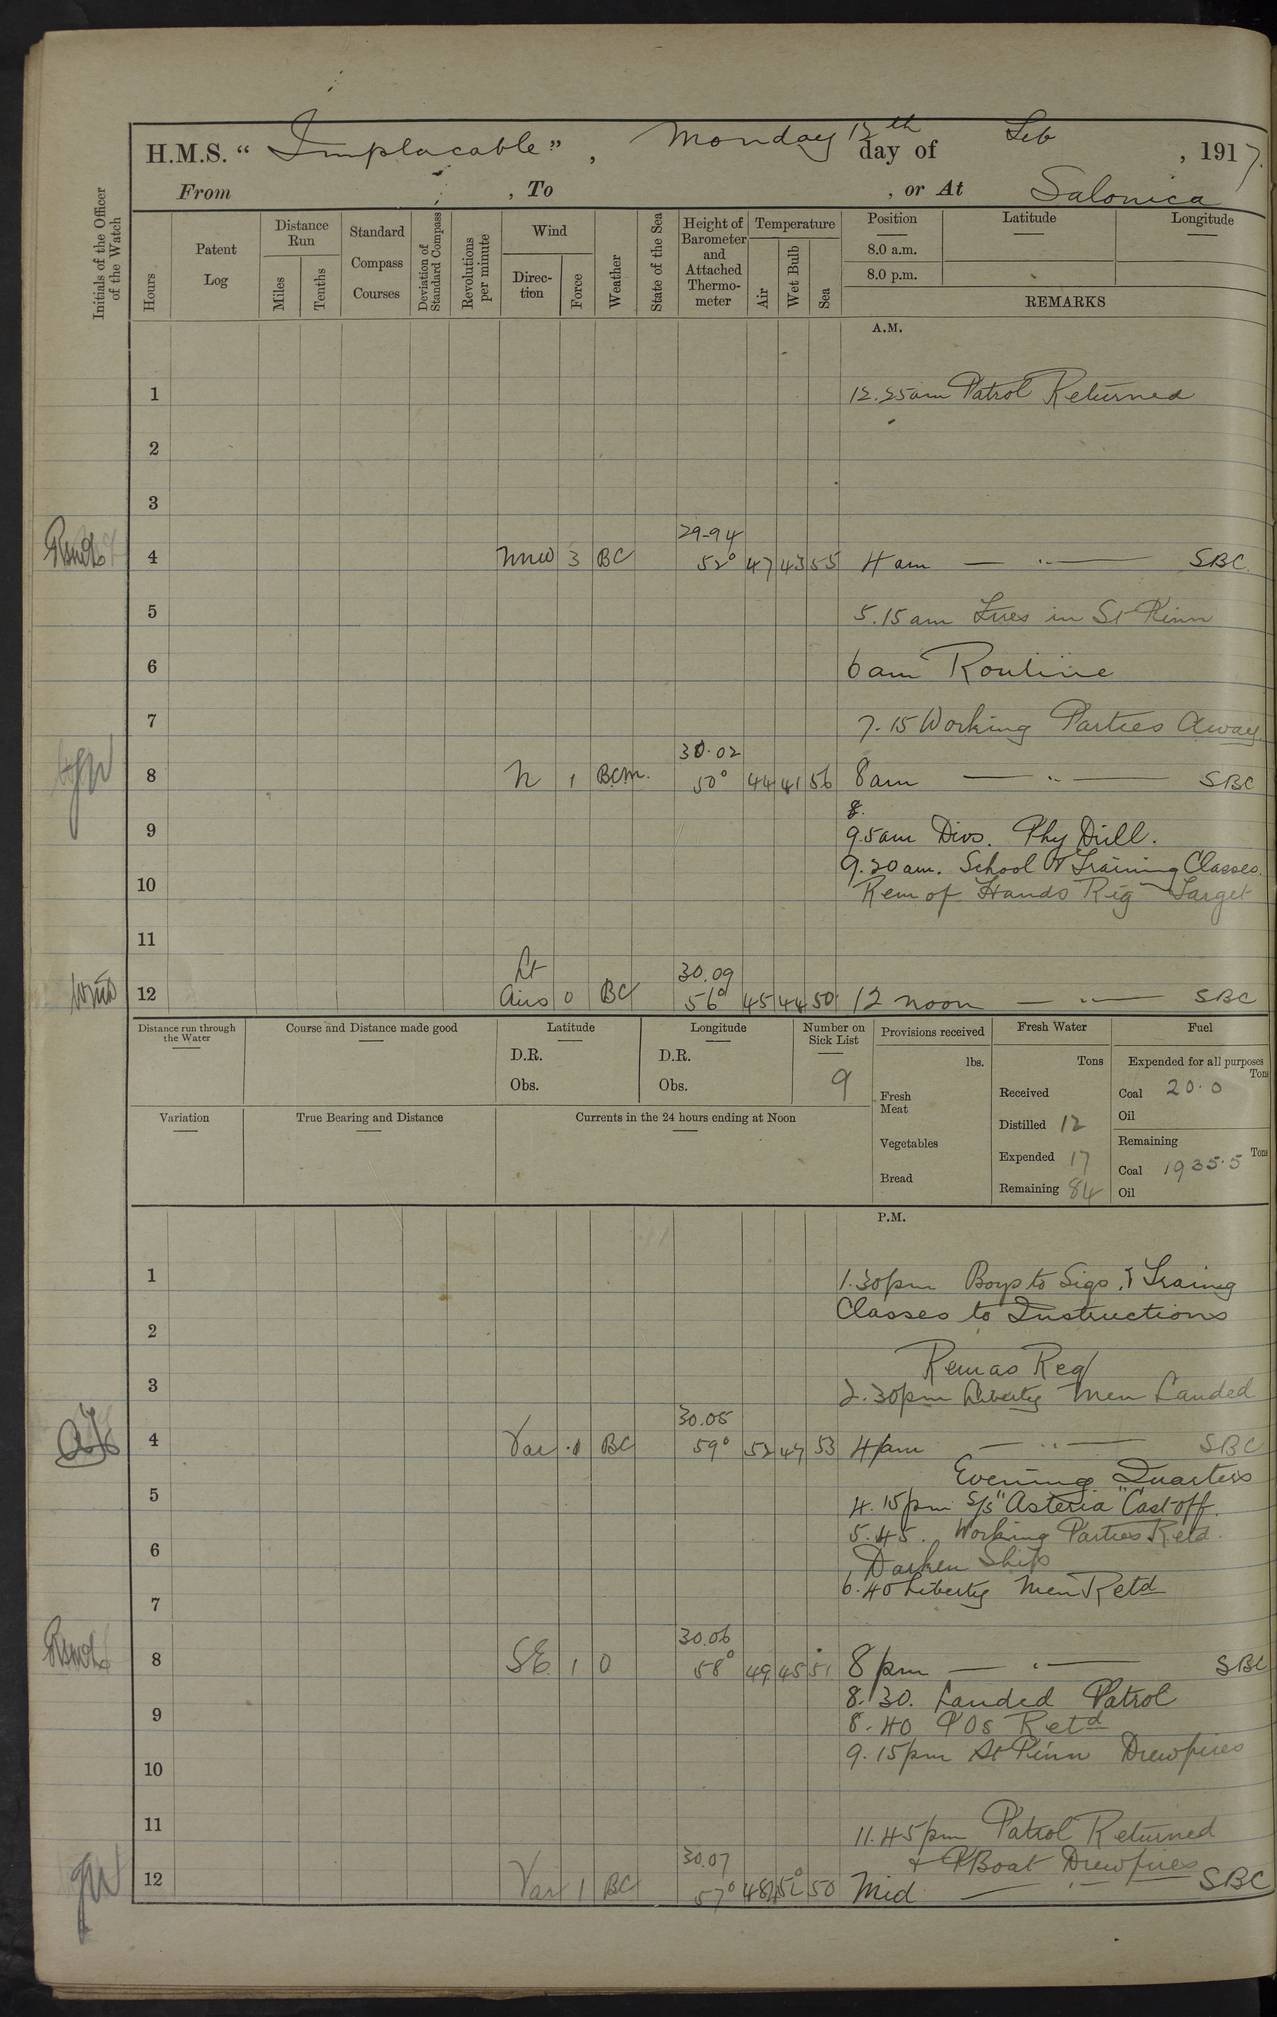 H.M.S. " Implacable " , Monday 12th day of Feb , 1917.
From , To , or At Salonica
Initials of the Officer of the Watch
Hours
Patent Log
Distance Run
Miles
Tenths
Standard Compass Courses
Deviation of Standard Compass
Revolutions per minute
Wind
Direc-tion
Force
Weather
State of the Sea
Height of Barometer and Attached Thermo-meter
Temperature
Air
Wet Bulb
Sea
Position Latitude Longitude
8.0 a.m.
8.0 p.m.
REMARKS
A.M.
1 12.25am Patrol Returned
2
3
29.94
4 NNW 3 BC 52° 47 43 55 4 am — " — SBC
5 5.15 am Fires in St Pinn
6 6 am Routine
7 7.15 Working Parties Away
30.02
8 N 1 BCM. 50° 44 41 56 8am — " — SBC
8.
9 9.5am Divs. Phy Drill.
9.20am. School & Training Classes.
10 Rem of Hands Rig Target
11
Lt 30.09
12 Airs 0 BC 56° 45 44 50 12 noon — " — SBC
Distance run through the Water
Course and Distance made good
Latitude
D.R.
Obs.
Longitude
D.R.
Obs.
Number on Sick List
9
Provisions received
lbs.
Fresh Meat
Vegetables
Bread
Fresh Water
Tons
Received
Distilled 12
Expended 17
Remaining 84
Fuel
Expended for all purposes
Tons
Coal 20.0
Oil
Remaining
Tons
Coal 1935.5
Oil
Variation
True Bearing and Distance
Currents in the 24 hours ending at Noon
P.M.
1 1.30pm Boys to Sigs. & Traing
Classes to Instructions
2
Rem as Req
3 2.30pm Liberty Men Landed
30.05
4 Var 0 BC 59° 52 47 53 4pm — " — SBC
Evening Quarters
5 4.15pm S/S "Asteria" Cast off.
5.45. Working Parties Retd.
6 Darken Ship
6.40 Liberty Men Retd
7
30.06
8 SE 1 O 58° 49 45 51 8pm — " — SBC
8.30. Landed Patrol
9 8.40 POs Retd
9.15pm St Pinn Drew fires
10
11 11.45pm Patrol Returned
30.07 & PBoat Drew fires
12 Var 1 BC 57° 48 50 Mid — " — SBC